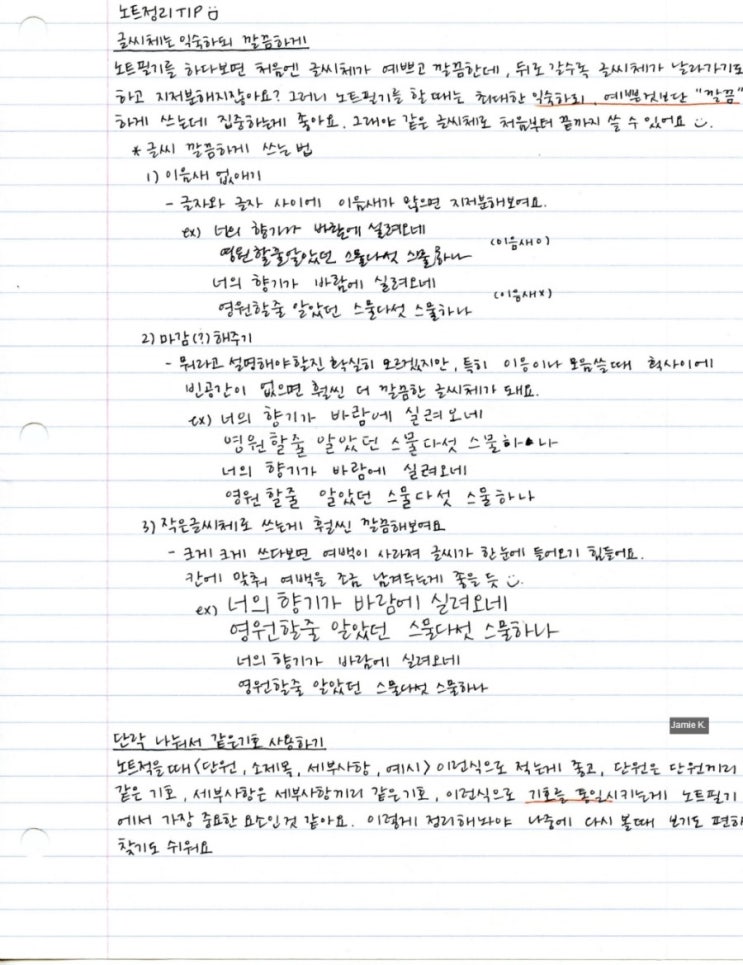 노트정리 TIP
글씨체는 익숙하되 깔끔하게
노트필기를 하다보면 처음엔 글씨체가 예쁘고 깔끔한데, 뒤로 갈수록 글씨체가 날라가기도
하고 지저분해지잖아요? 그러니 노트필기를 할 때는 최대한 익숙하되, 예쁠것보단 "깔끔"
하게 쓰는데 집중하는게 좋아요. 그래야 같은 글씨체로 처음부터 끝까지 쓸 수 있어요 :).
* 글씨 깔끔하게 쓰는 법
1) 이음새 없애기
- 글자와 글자 사이에 이음새가 많으면 지저분해보여요.
ex) 너의 향기가 바람에 실려오네
영원할줄알았던 스물다섯 스물하나 (이음새 o)
너의 향기가 바람에 실려오네
영원할줄 알았던 스물다섯 스물하나 (이음새 x)
2) 마감(?)해주기
- 뭐라고 설명해야할진 확실히 모르겠지만, 특히 이응이나 모음쓸때 획사이에
빈공간이 없으면 훨씬 더 깔끔한 글씨체가 돼요.
ex) 너의 향기가 바람에 실려오네
영원할줄 알았던 스물다섯 스물하나
너의 향기가 바람에 실려오네
영원할줄 알았던 스물다섯 스물하나
3) 작은글씨체로 쓰는게 훨씬 깔끔해보여요
- 크게 크게 쓰다보면 여백이 사라져 글씨가 한눈에 들어오기 힘들어요.
칸에 맞춰 여백을 조금 남겨두는게 좋을 듯 :).
ex) 너의 향기가 바람에 실려오네
영원할줄 알았던 스물다섯 스물하나
너의 향기가 바람에 실려오네
영원할줄 알았던 스물다섯 스물하나
Jamie K.
단락 나눠서 같은기호 사용하기
노트적을때 <단원, 소제목, 세부사항, 예시> 이런식으로 적는게 좋고, 단원은 단원끼리
같은 기호, 세부사항은 세부사항끼리 같은기호, 이런식으로 기호를 통일시키는게 노트필기
에서 가장 중요한 요소인것 같아요. 이렇게 정리해놔야 나중에 다시 볼때 보기도 편하
찾기도 쉬워요